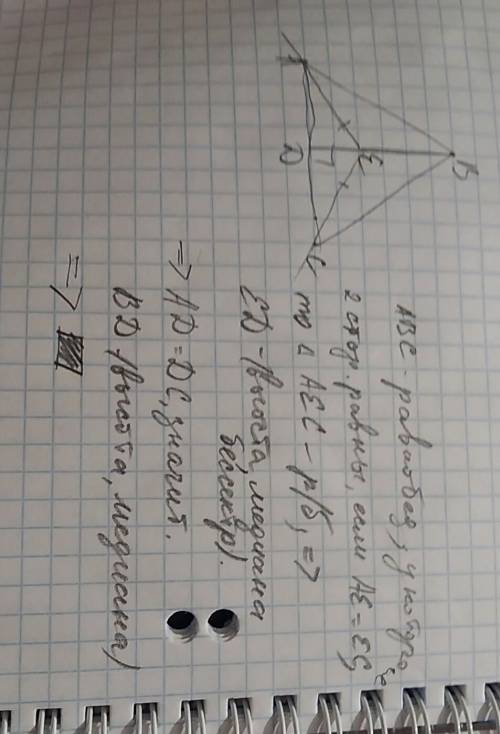 B
E
A
D
C
ABC - равнобед, у которого
2 стор. равны, если AE = EC,
то и AEC - р/б, =>
ED - (высота, медиана
бессектр).
=> AD = DC, значит.
BD - (высота, медиана)
=>